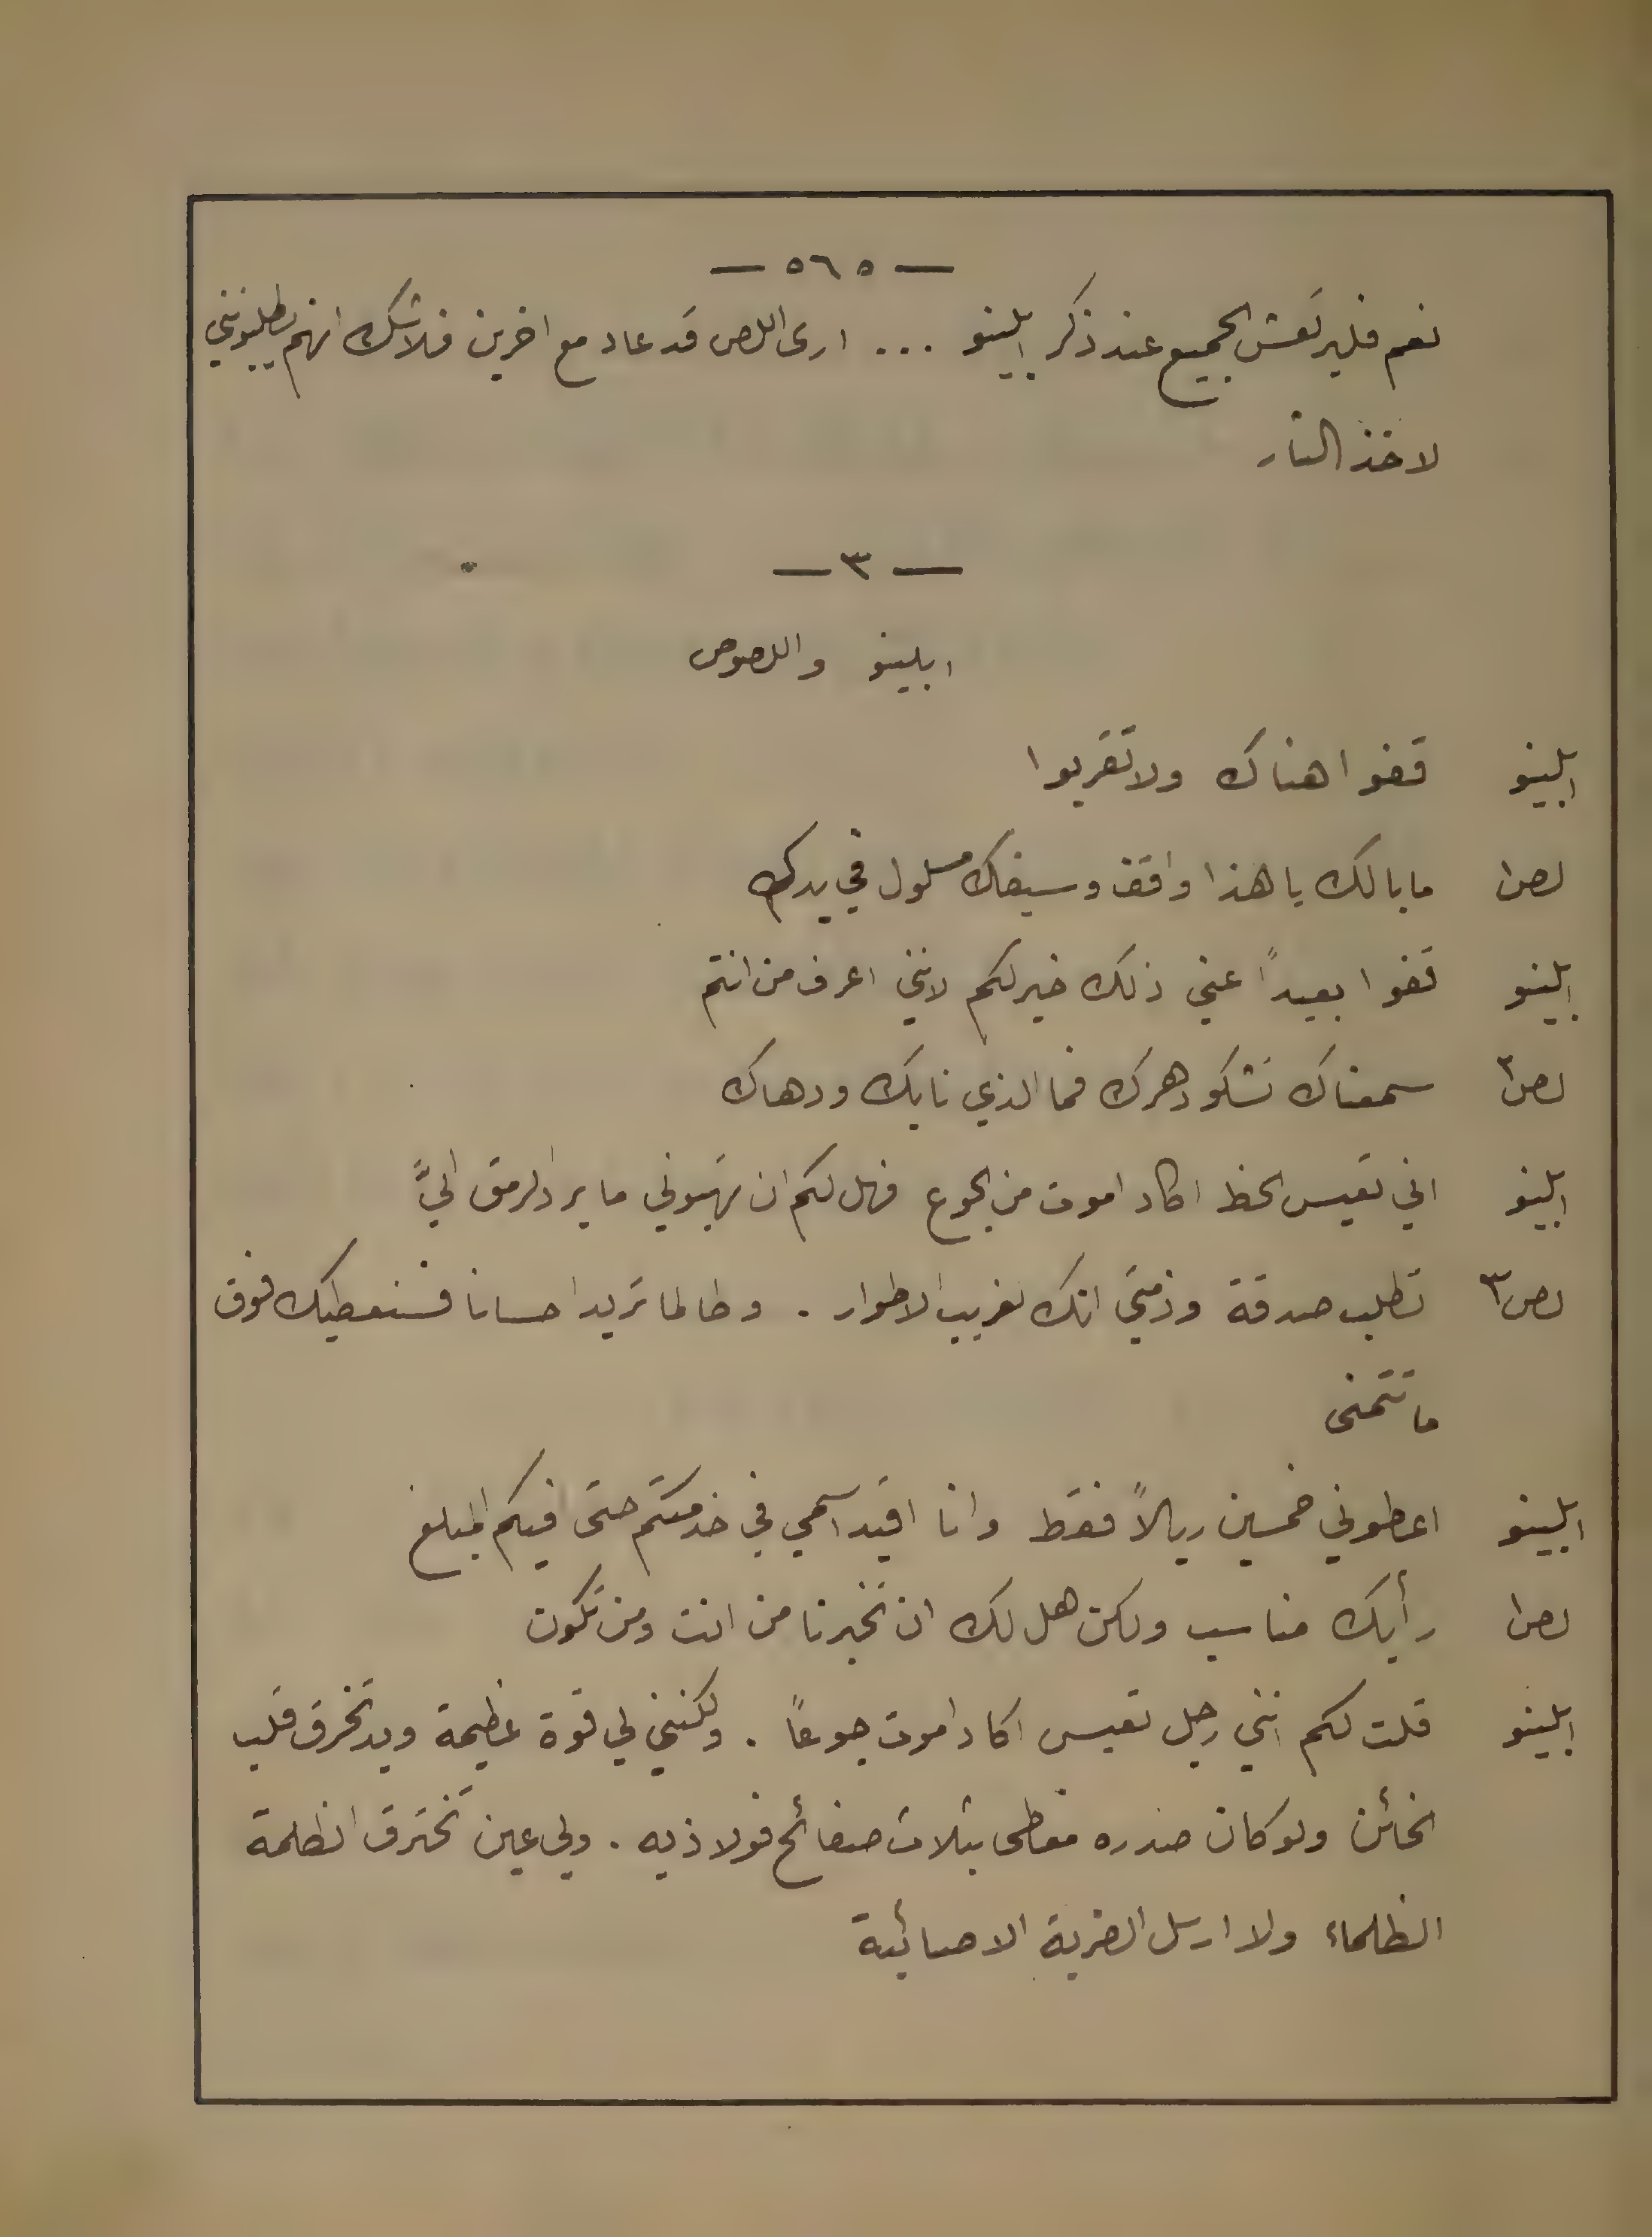 — ٥٦٥ —
نعم فليرتعش الجميع عند ذكر ابلينو ... ارى اللص قد عاد مع اخرين فلاشك انهم يطلبونني
لاخذ الثار
— ٣ —
ابلينو واللصوص
ابلينو قفوا هناك ولا تقربوا
لص١ ما بالك يا هذا واقف وسيفك مسلول في يدك
ابلينو قفوا بعيداً عني ذلك خير لكم لانني اعرف من انتم
لص٢ سمعناك تشكو دهرك فما الذي نابك ودهاك
ابلينو اني تعيس الحظ اكاد اموت من الجوع فهل لكم ان تهبوني ما يرد الرمق اليَّ
لص٣ تطلب صدقة وذمتي انك لغريب الاطوار . وطالما تريد احسانا فسنعطيك فوق
ما تتمنى
ابلينو اعطوني خمسين ريالاً فقط وانا اقيد اسمي في خدمتكم حتى افيكم المبلغ
لص١ رأيك مناسب ولكن هل لك ان تخبرنا من انت ومن تكون
ابلينو قلت لكم انني رجل تعيس اكاد اموت جوعاً . ولكنني لي قوة عظيمة ويد تخرق قلب
الخائن ولو كان صدره مغطى بثلاث صفائح فولاذيه . ولي عين تخترق الظلمة
الظلماء ولا ارسل الضربة الا صائبة